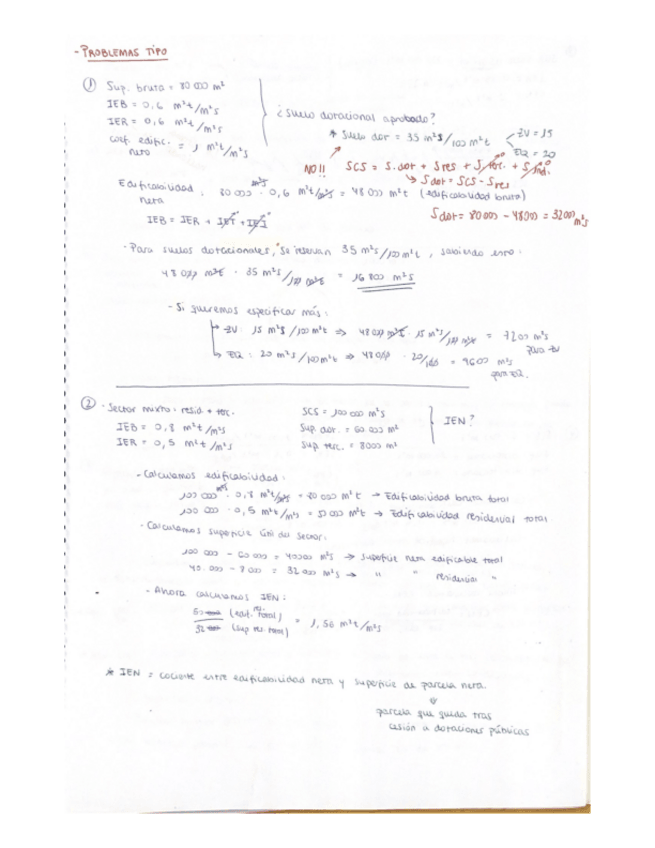 - PROBLEMAS TIPO
① Sup. bruta = 80 000 m²
IEB = 0,6 m²t/m²s
IER = 0,6 m²t/m²s
coef. edific. neto = 1 m²t/m²s
¿Suelo dotacional aprobado?
* Suelo dot = 35 m²s/100 m²t
ZV = 15
EQ = 20
NO!! SCS = S.dot + Sres + S terc. + S ind.
↳ Sdot = SCS - Sres
Edificabilidad neta : 80 000 m²s · 0,6 m²t/m²s = 48 000 m²t (edificabilidad bruta)
Sdot = 80 000 - 48000 = 3200 m²s
IEB = IER + IET + IEI
· Para suelos dotacionales, se reservan 35 m²s/100 m²t, sabiendo esto:
48 000 m²t · 35 m²s/100 m²t = 16 800 m²s
- Si queremos especificar más:
ZV : 15 m²s/100 m²t ⇒ 48 000 m²t · 15 m²s/100 m²t = 7200 m²s para ZV
EQ : 20 m²s/100 m²t ⇒ 48 000 · 20/100 = 9600 m²s para EQ.
② · Sector mixto: resid + terc.
IEB = 0,8 m²t/m²s
IER = 0,5 m²t/m²s
SCS = 100 000 m²s
Sup. dot. = 60 000 m²
Sup. terc. = 8000 m²
IEN?
- Calculamos edificabilidad:
100 000 m²s · 0,8 m²t/m²s = 80 000 m²t → Edificabilidad bruta total
100 000 · 0,5 m²t/m²s = 50 000 m²t → Edificabilidad residencial total
- Calculamos superficie útil del sector:
100 000 - 60 000 = 40000 m²s → Superficie neta edificable total
40.000 - 8 000 = 32 000 m²s → " " residencial "
- Ahora calculamos IEN:
(edif. res. total)
(sup res. total)
= 1,56 m²t/m²s
* IEN = cociente entre edificabilidad neta y superficie de parcela neta.
⇓
parcela que queda tras
cesión a dotaciones públicas